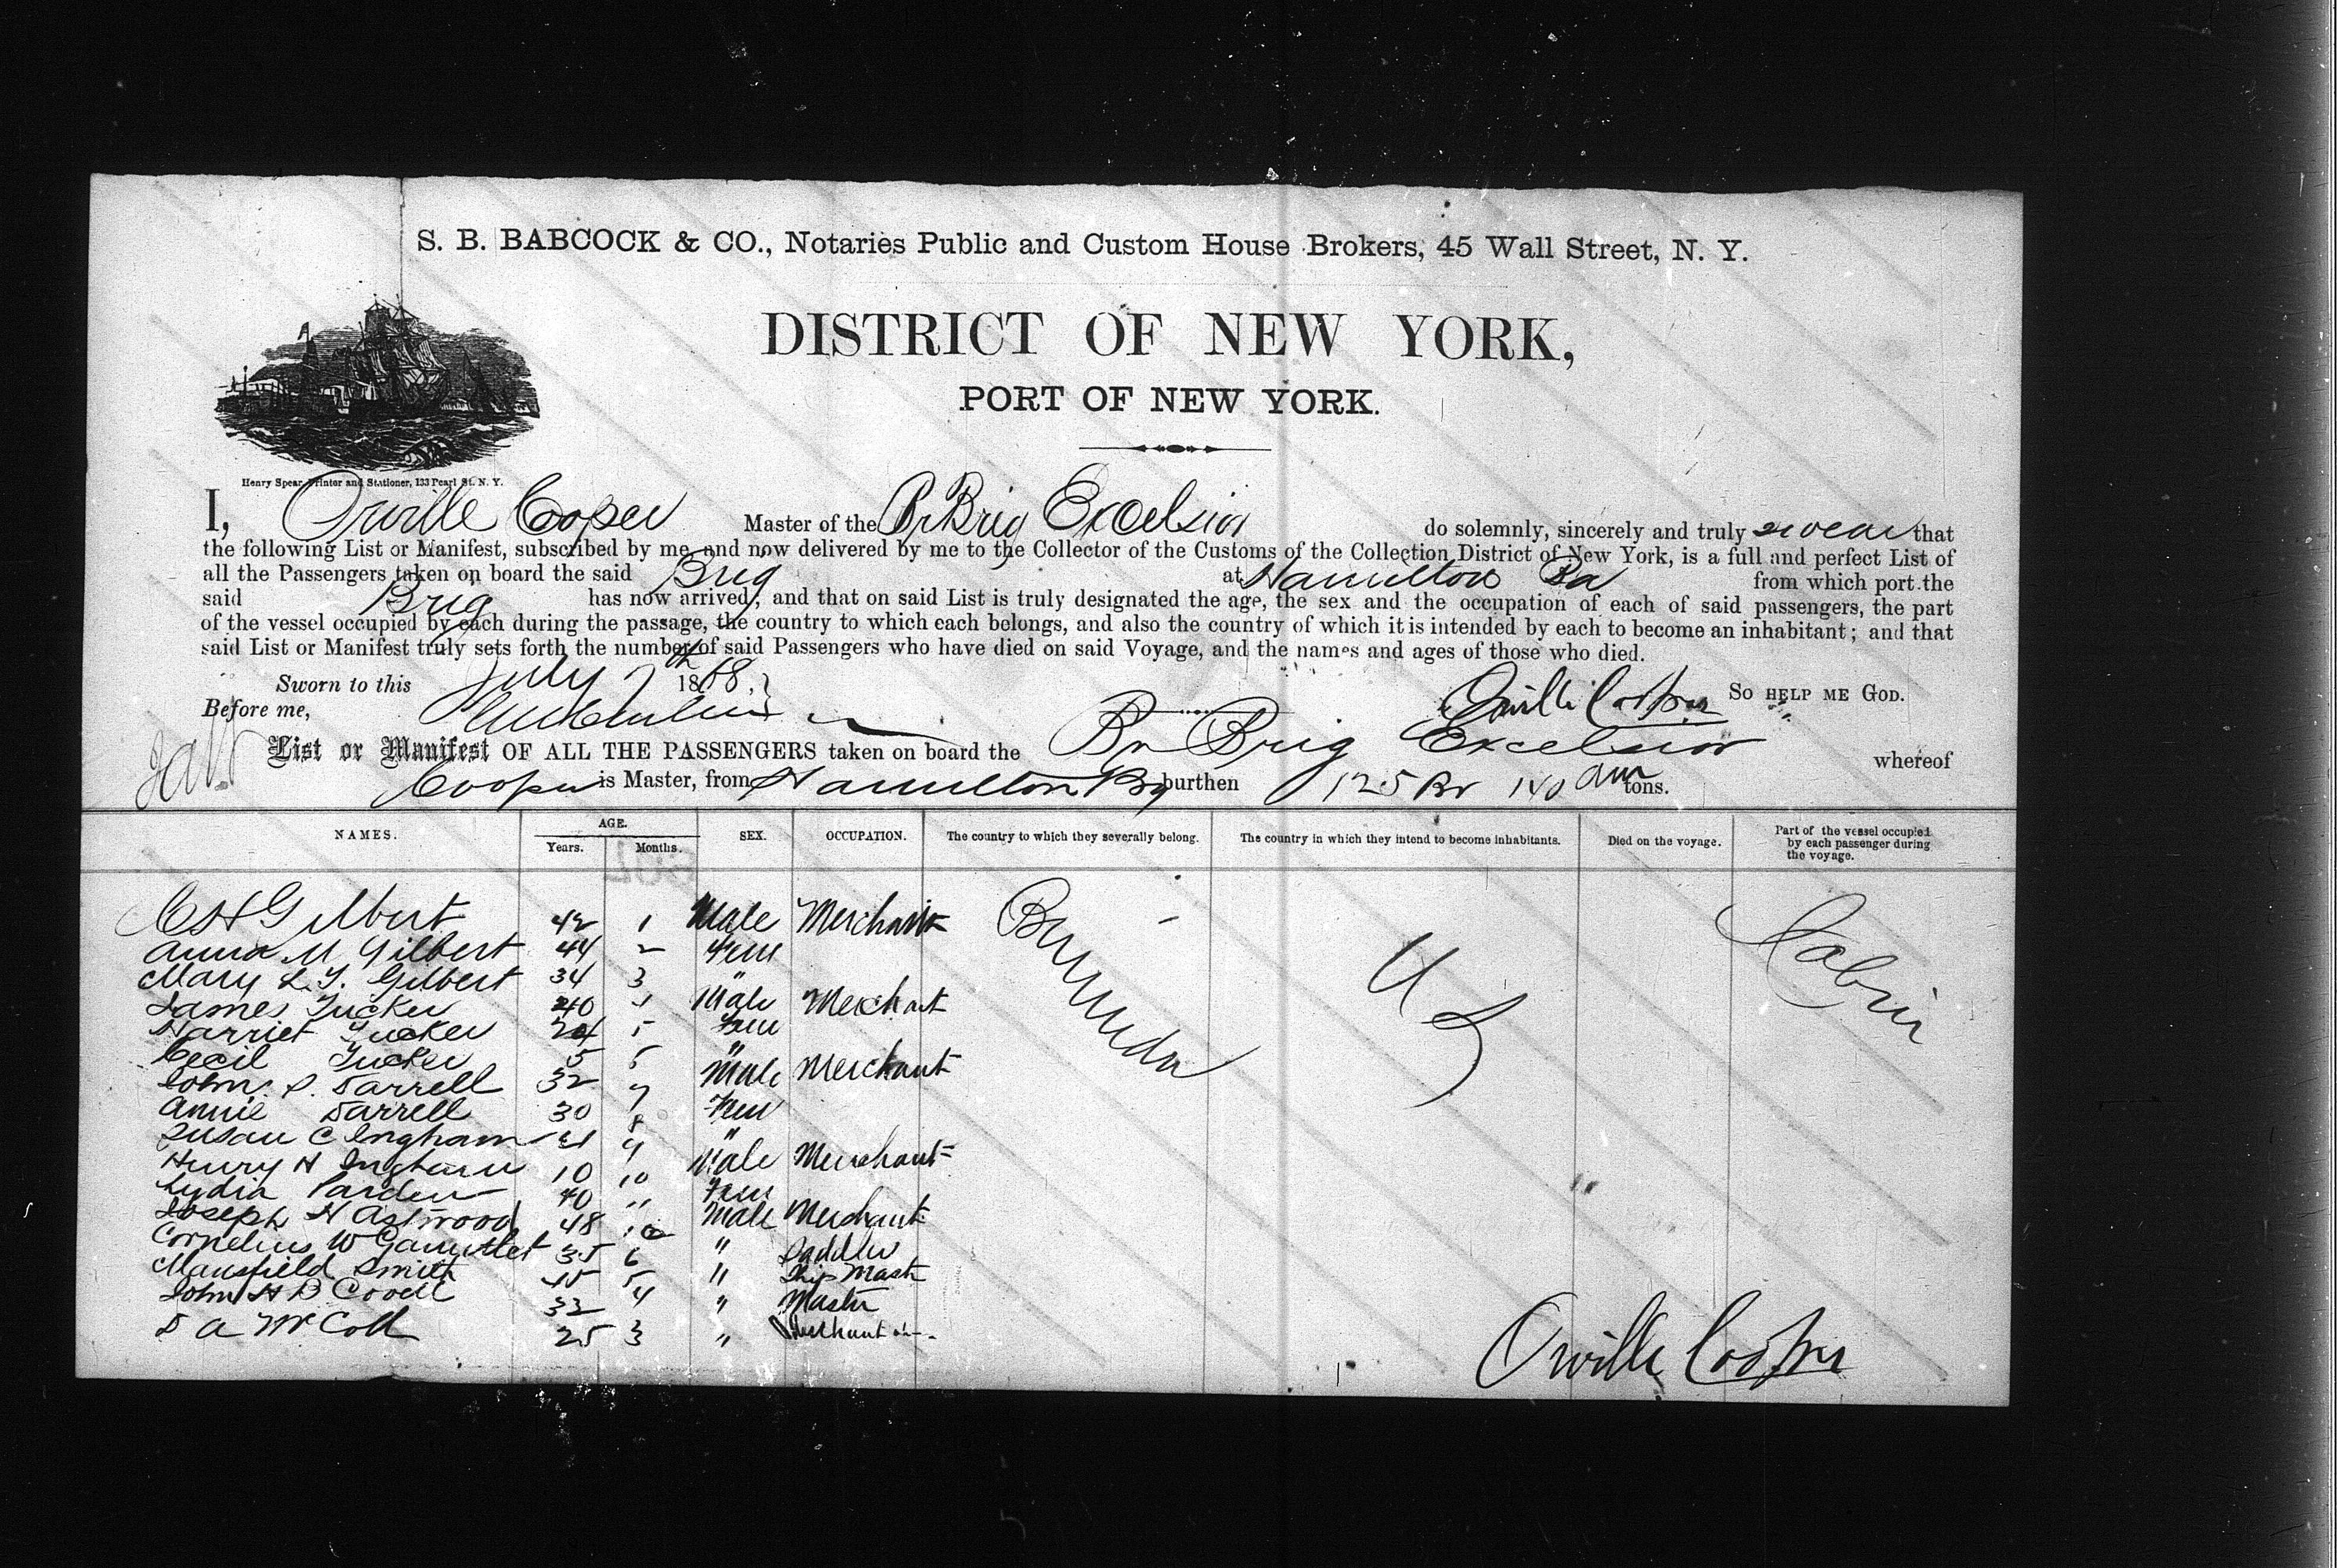 S. B. BABCOCK & CO., Notaries Public and Custom House Brokers, 45 Wall Street, N. Y.
DISTRICT OF NEW YORK,
PORT OF NEW YORK.
Henry Spear, Printer and Stationer, 133 Pearl St. N. Y.
I, Orville Cooper Master of the Br Brig Excelsior do solemnly, sincerely and truly swear that
the following List or Manifest, subscribed by me, and now delivered by me to the Collector of the Customs of the Collection District of New York, is a full and perfect List of
all the Passengers taken on board the said Brig at Hamilton Ba from which port the
said Brig has now arrived; and that on said List is truly designated the age, the sex and the occupation of each of said passengers, the part
of the vessel occupied by each during the passage, the country to which each belongs, and also the country of which it is intended by each to become an inhabitant; and that
said List or Manifest truly sets forth the number of said Passengers who have died on said Voyage, and the names and ages of those who died.
Sworn to this July 7th 1868, Orville Cooper SO HELP ME GOD.
Before me,
List or Manifest OF ALL THE PASSENGERS taken on board the Br Brig Excelsior whereof
Cooper is Master, from Hamilton burthen 125 Br 140 Am tons.
NAMES. AGE. Years. Months. SEX. OCCUPATION. The country to which they severally belong. The country in which they intend to become inhabitants. Died on the voyage. Part of the vessel occupied by each passenger during the voyage.
C H Gilbert 42 1 Male Merchant Bermuda U S Cabin
Anna M Gilbert 44 2 Fem
Mary L. T. Gilbert 34 3 "
James Tucker 40 4 Male Merchant
Harriet Tucker 24 5 Fem
Cecil Tucker 5 5 "
John S. Darrell 32 7 Male Merchant
Annie Darrell 30 8 Fem
Susan C Ingham 9 "
Henry H Ingham 10 10 Male Merchant
Lydia 40 " Fem
Joseph H Astwood 48 Male Merchant
Cornelius W Gauntlet 35 6 " Saddler
Mansfield Smith 45 5 " Ship Mast
John H B Covell 32 4 " Master
D A McCall 25 3 " Merchant
Orville Cooper